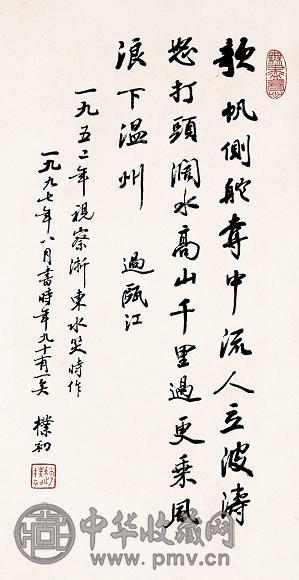 無盡意
欹帆側舵奪中流人立波濤
怒打頭闊水高山千里過更乘風
浪下温州 過甌江
一九五二年視察浙東水災時作
一九九七年八月書時年九十有一矣 樸初
中华收藏网
www.pmv.cn